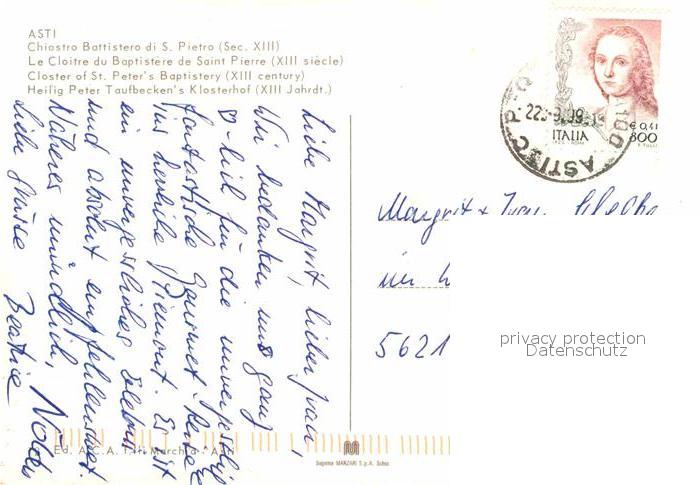 ASTI
Chiostro Battistero di S. Pietro (Sec. XIII)
Le Cloitre du Baptistère de Saint Pierre (XIII siècle)
Closter of St. Peter's Baptistery (XIII century)
Heilig Peter Taufbecken's Klosterhof (XIII Jahrdt.)
Liebe Margrit, lieber Ivan,
Wir bedanken uns ganz
lich für die unvergesslich
fantastische Gourmet-Reise
ins herrliche Piemont. Es ist
ein unvergessliches Erlebnis
und absolut empfehlenswert.
Näheres mündlich,
Liebe Grüsse Beatrice
ITALIA
€ 0,41
800
ASTI
Margrit + Ivan
im
5621
privacy protection
Datenschutz
Ed. A.C.A. T.
Asti
Sagoma MANZARI S.p.A.